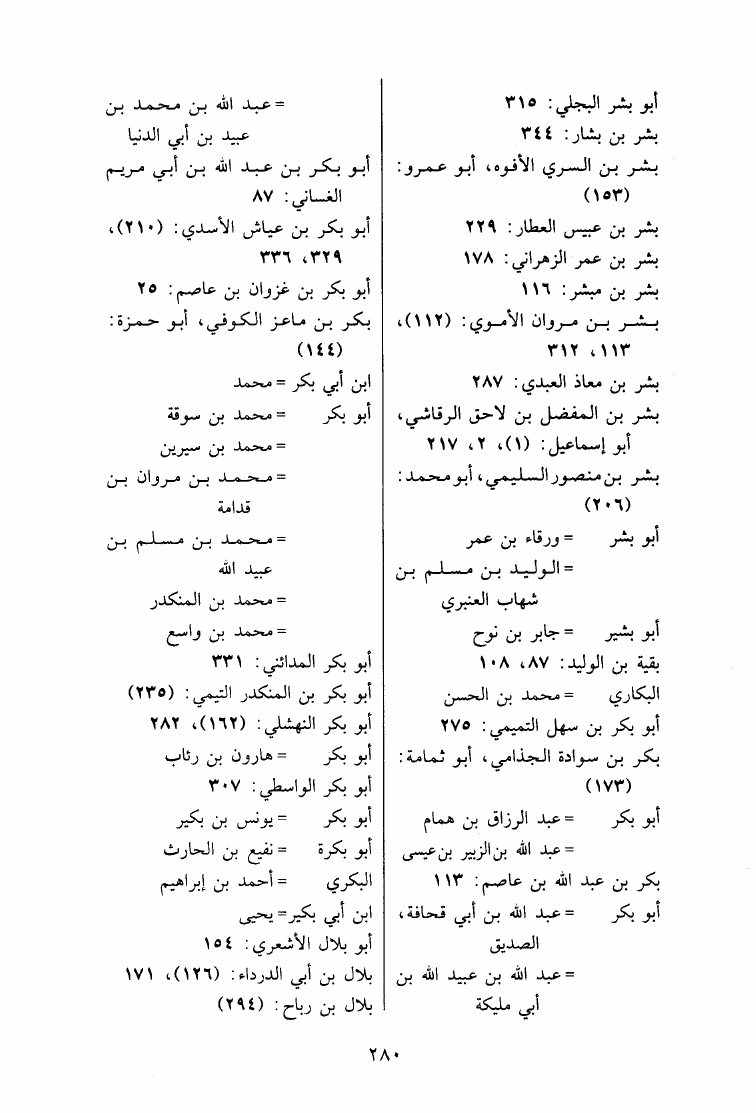 أبو بشر البجلي: ٣١٥
بشر بن بشار: ٣٤٤
بشر بن السري الأفوه، أبو عمرو:
(١٥٣)
بشر بن عبيس العطار: ٢٢٩
بشر بن عمر الزهراني: ١٧٨
بشر بن مبشر: ١١٦
بشر بن مروان الأموي: (١١٢)،
١١٣، ٣١٢
بشر بن معاذ العبدي: ٢٨٧
بشر بن المفضل بن لاحق الرقاشي،
أبو إسماعيل: (١)، ٢، ٢١٧
بشر بن منصور السليمي، أبو محمد:
(٢٠٦)
أبو بشر = ورقاء بن عمر
= الوليد بن مسلم بن
شهاب العنبري
أبو بشير = جابر بن نوح
بقية بن الوليد: ٨٧، ١٠٨
البكاري = محمد بن الحسن
أبو بكر بن سهل التميمي: ٢٧٥
بكر بن سوادة الجذامي، أبو ثمامة:
(١٧٣)
أبو بكر = عبد الرزاق بن همام
= عبد الله بن الزبير بن عيسى
بكر بن عبد الله بن عاصم: ١١٣
أبو بكر = عبد الله بن أبي قحافة،
الصديق
= عبد الله بن عبيد الله بن
أبي مليكة
= عبد الله بن محمد بن
عبيد بن أبي الدنيا
أبو بكر بن عبد الله بن أبي مريم
الغساني: ٨٧
أبو بكر بن عياش الأسدي: (٢١٠)،
٣٢٩، ٣٣٦
أبو بكر بن غزوان بن عاصم: ٢٥
بكر بن ماعز الكوفي، أبو حمزة:
(١٤٤)
ابن أبي بكر = محمد
أبو بكر = محمد بن سوقة
= محمد بن سيرين
= محمد بن مروان بن
قدامة
= محمد بن مسلم بن
عبيد الله
= محمد بن المنكدر
= محمد بن واسع
أبو بكر المدائني: ٣٣١
أبو بكر بن المنكدر التيمي: (٢٣٥)
أبو بكر النهشلي: (١٦٢)، ٢٨٢
أبو بكر = هارون بن رئاب
أبو بكر الواسطي: ٣٠٧
أبو بكر = يونس بن بكير
أبو بكرة = نفيع بن الحارث
البكري = أحمد بن إبراهيم
ابن أبي بكير = يحيى
أبو بلال الأشعري: ١٥٤
بلال بن أبي الدرداء: (١٢٦)، ١٧١
بلال بن رباح: (٢٩٤)
٢٨٠